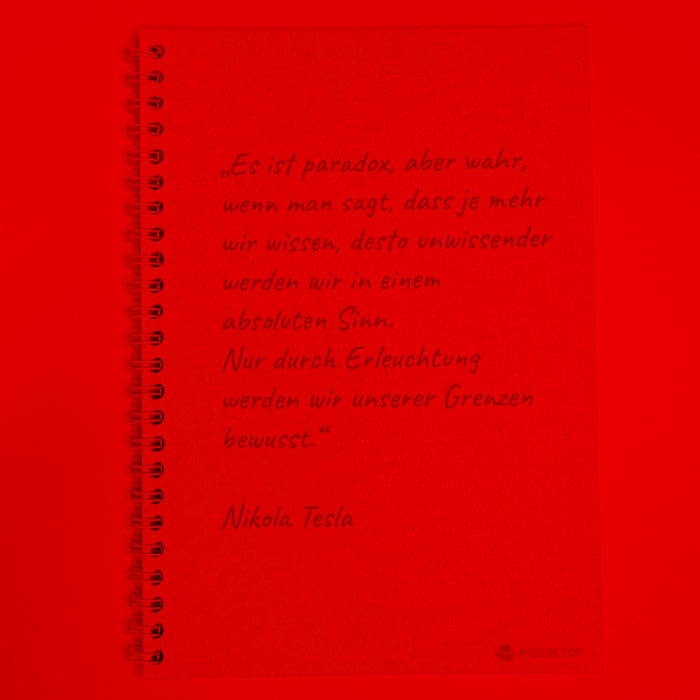 „Es ist paradox, aber wahr,
wenn man sagt, dass je mehr
wir wissen, desto unwissender
werden wir in einem
absoluten Sinn.
Nur durch Erleuchtung
werden wir unserer Grenzen
bewusst.“
Nikola Tesla